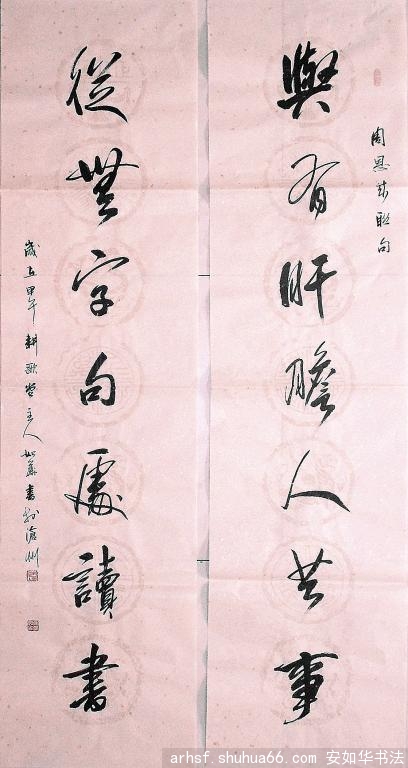 周恩来聯句
與有肝膽人共事
從無字句處讀書
歲在甲午耕堂主人如華書於滄州
arhsf.shuhua66.com 安如华书法